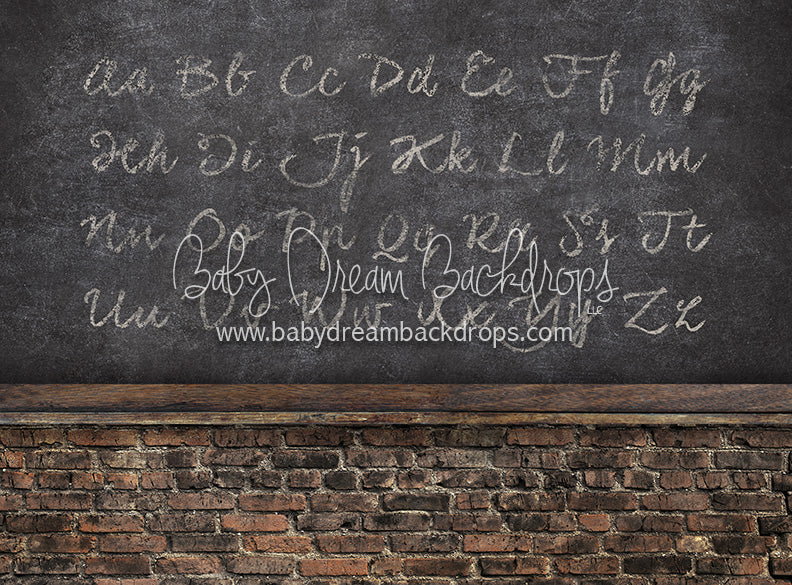 Aa Bb Cc Dd Ee Ff Gg
Hh Ii Jj Kk Ll Mm
Nn Oo Pp Qq Rr Ss Tt
Baby Dream Backdrops LLC
Uu Vv Ww Xx Yy Zz
www.babydreambackdrops.com